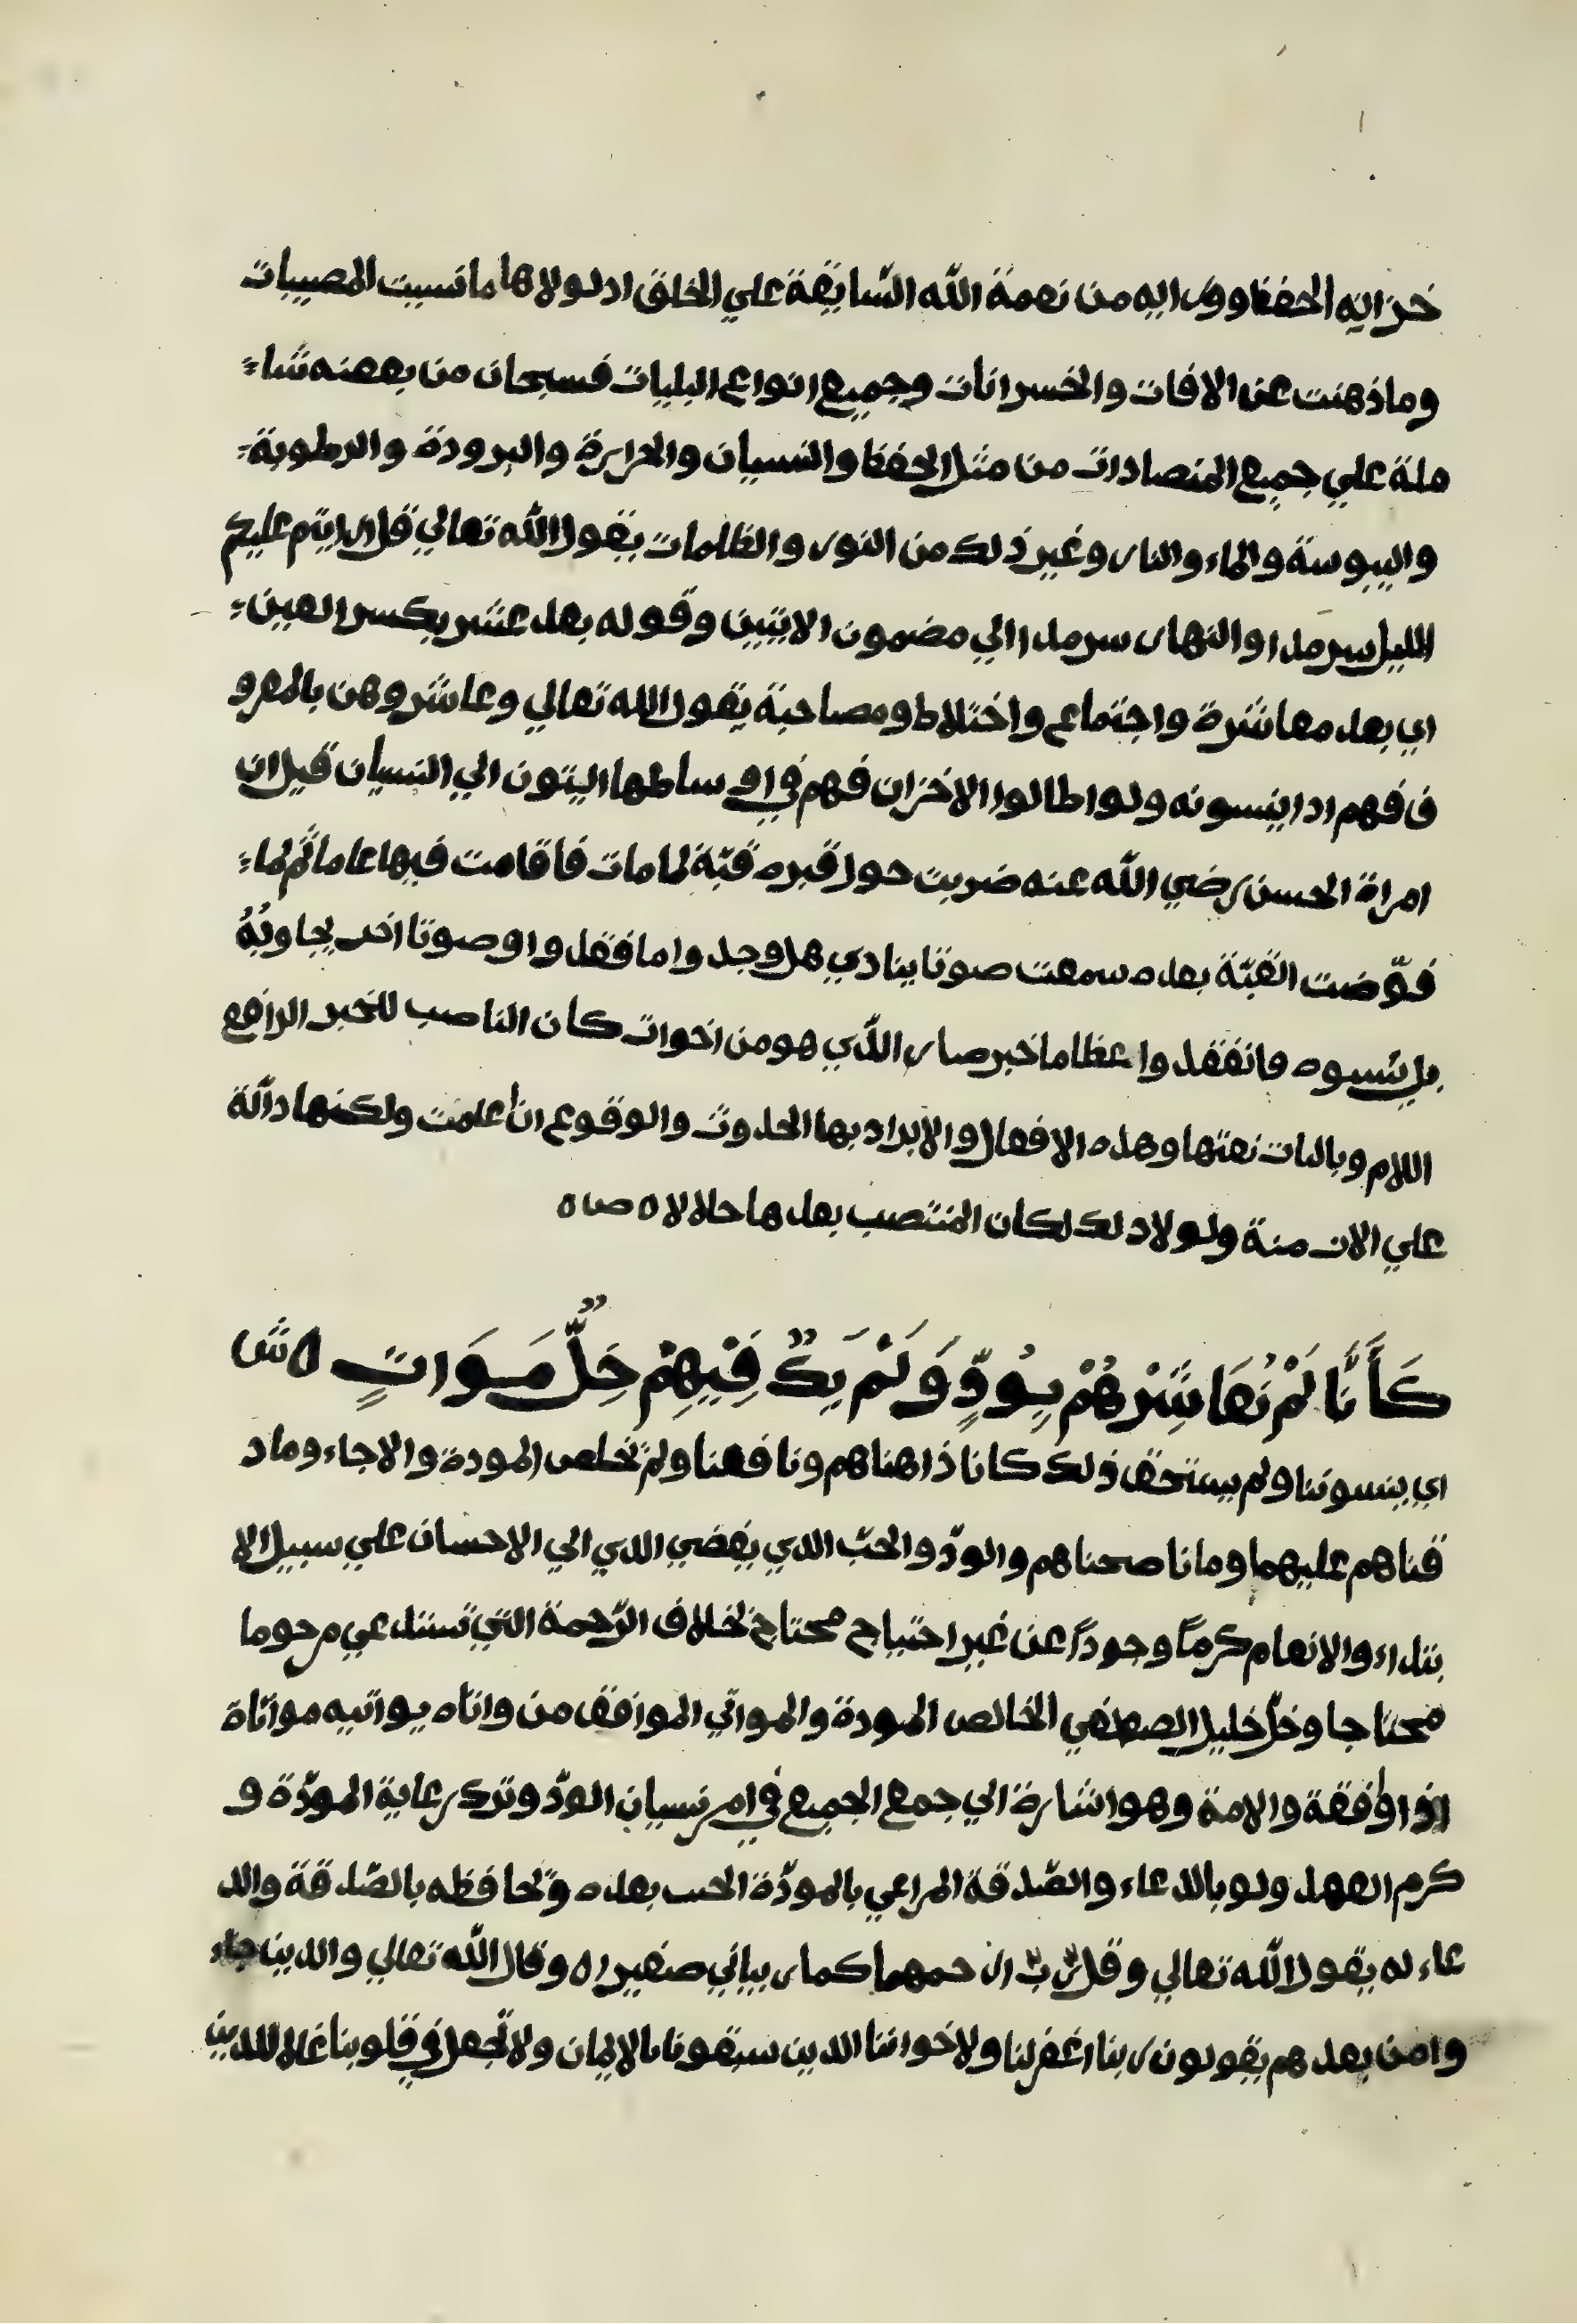 خزانه الحفظ ووراله من نعمة الله السّابقة علي الخلق اد لولاها ما نسيت المصيبات
وما ذهنت عن الافات والخسرانات وجميع انواع البليات فسبحان من بعصنه شا
ملة علي جميع المتصادات من مثل الحفظ والنسيان والحرارة والبرودة والرطوبة
واليبوسة والماء والنار وغير ذلك من النور والظلمات يقول الله تعالي قل ارايتم عليكم
الليل سرمدا والنهار سرمدا الي مضمون الايتين وقوله بعد عشر بكسر العين
اي بعد معاشرة واجتماع واختلاط ومصاحبة يقول الله تعالي وعاشروهن بالمعرو
ف فهم ادا ينسونه ولو اطالوا الاخزان فهم في اوساطها اليتون الي النسيان قيل ان
امراة الحسن رضي الله عنه ضربت حول قبره قبّة لما مات فاقامت فيها عاما ثم لما
قوّضت القبّة بعده سمعت صوتا ينادي هل وجدوا ما فقدوا وصوتا اخر يجاوبُهُ
بل يئسوه فانفقدوا عظاما خبر صار الدّي هو من اخوات كان الناصب للخبر الرافع
اللام وبالبات نعتها وهده الافعال والا يراد بها الحدوث والوقوع ان علمت ولكنها دآلة
علي الاز منة ولولا دلك لكان المنتصب بعدها حالا لا ه ص ه
كَأَنَّا لَمْ نُعَاشِرْهُمْ بِوُدٍّ وَلَمْ يَكُ فِيهِمْ خِلٌّ مَوَاتٍ ه ش
اي ينسوننا ولم يستحق ذلك كانا ذاهناهم ونافعنا ولم نخلص المودة والاجاء وماد
قناهم عليهما وما نا صحناهم والودّ والحبّ الدي يفضي الدي الي الاحسان علي سبيل الا
بتداء والانعام كرمًا وجودًا عن غير احتياج محتاج بخلاف الرّحمة التي تستدعي مرحوما
محتاجا وخلّ خليل الصطفي الخالص المودة والمواتي الموافق من واتاه يواتيه مواتاة
اذا وافقة والامة وهو اشارة الي جمع الجميع في امر نسيان الودّ وترك رعاية المودّة و
كرم العهد ولو بالدعاء والصّدقة المراعي بالمودّة الحب بعده وتحافظه بالصّدقة والد
عاء له يقول الله تعالي وقل رّبّ ارحمهما كما ربياني صغيرا ه وقال الله تعالي والدين جاء
وا من بعدهم يقولون ربنا اغفر لنا ولاخواننا الدين سبقونا بالايمان ولا تجعل في قلوبنا غلا للدين